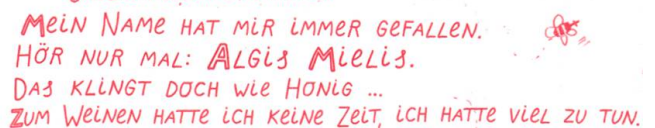 Mein Name hat mir immer gefallen.
Hör nur mal: Algis Mielis.
Das klingt doch wie Honig ...
Zum Weinen hatte ich keine Zeit, ich hatte viel zu tun.